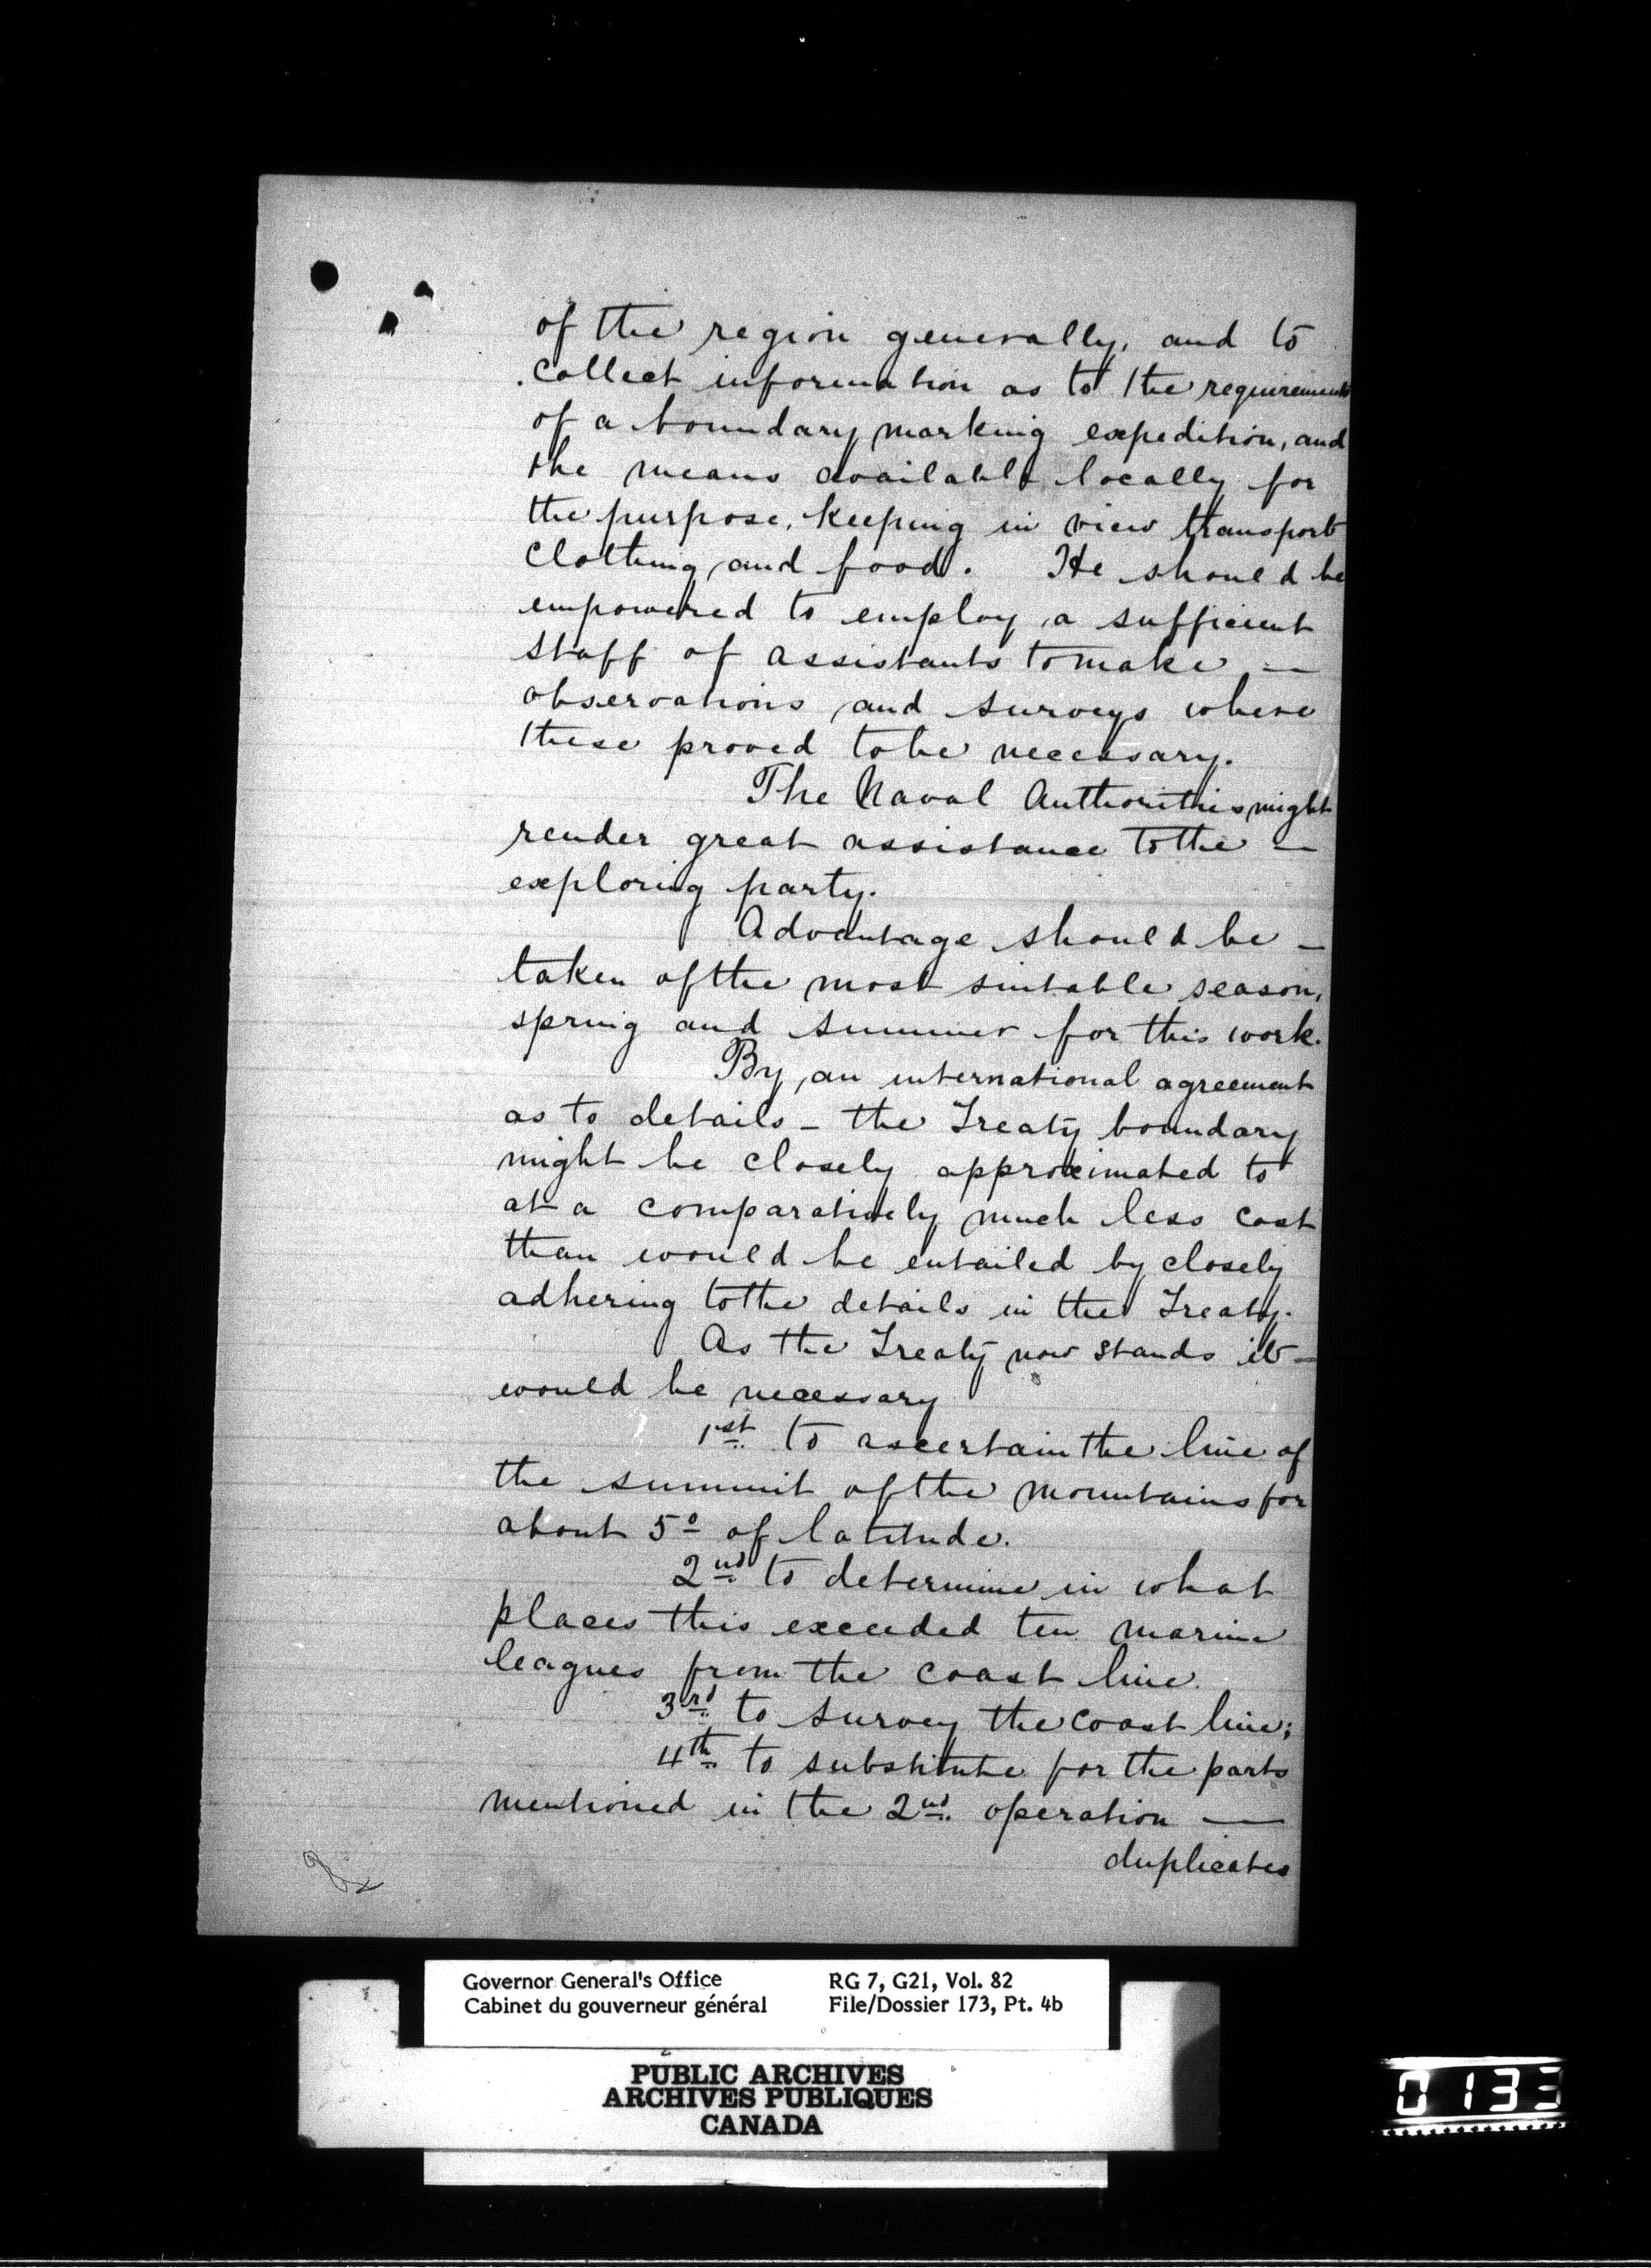 of the region generally, and to
collect information as to the requirements
of a boundary marking expedition, and
the means available locally for
the purpose, keeping in view transport
clothing, and food. He should be
empowered to employ a sufficient
staff of assistants to make —
observations and surveys where
these proved to be necessary.
The Naval Authorities might
render great assistance to the —
exploring party.
Advantage should be —
taken of the most suitable season,
spring and summer for this work.
By an international agreement
as to details – the Treaty boundary
might be closely approximated to
at a comparatively much less cost
than would be entailed by closely
adhering to the details in the Treaty.
As the Treaty now stands it —
would be necessary
1st to ascertain the line of
the summit of the mountains for
about 5° of latitude.
2nd to determine in what
places this exceeded ten marine
leagues from the coast line.
3rd to survey the coast line;
4th to substitute for the parts
mentioned in the 2nd operation —
duplicates
Governor General's Office RG 7, G21, Vol. 82
Cabinet du gouverneur général File/Dossier 173, Pt. 4b
PUBLIC ARCHIVES
ARCHIVES PUBLIQUES
CANADA
0133